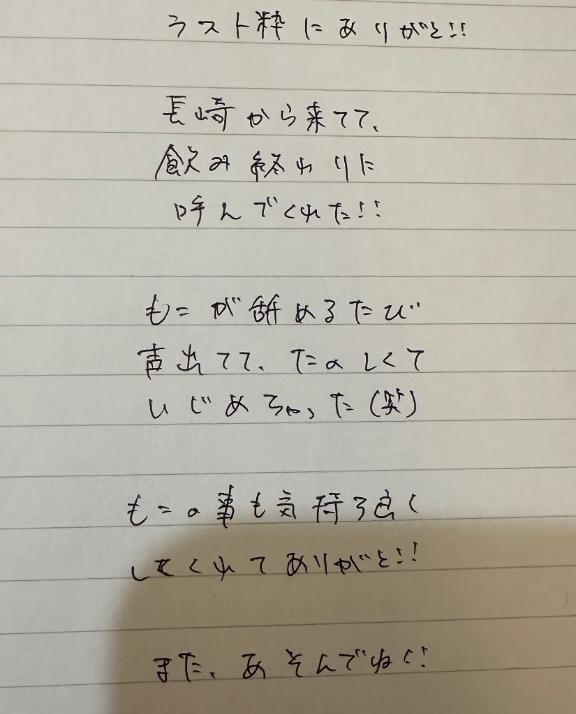 ラスト枠にありがと!!
長崎から来てて、
飲み終わりに
呼んでくれた!!
もこが舐めるたび
声出てて、たのしくて
いじめちゃった(笑)
もこの事も気持ち良く
してくれてありがと!!
また、あそんでね!!